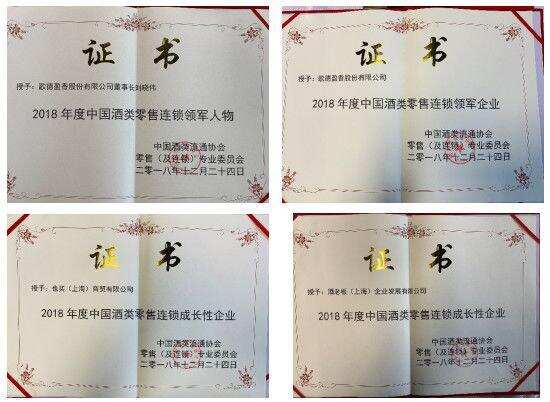 证书
授予：歌德盈香股份有限公司董事长刘晓伟
2018 年度中国酒类零售连锁领军人物
中国酒类流通协会
零售（及连锁）专业委员会
二零一八年十二月二十四日
证书
授予：歌德盈香股份有限公司
2018 年度中国酒类零售连锁领军企业
中国酒类流通协会
零售（及连锁）专业委员会
二零一八年十二月二十四日
证书
授予：也买（上海）商贸有限公司
2018 年度中国酒类零售连锁成长性企业
中国酒类流通协会
零售（及连锁）专业委员会
二零一八年十二月二十四日
证书
授予：酒老板（上海）企业发展有限公司
2018 年度中国酒类零售连锁成长性企业
中国酒类流通协会
零售（及连锁）专业委员会
二零一八年十二月二十四日